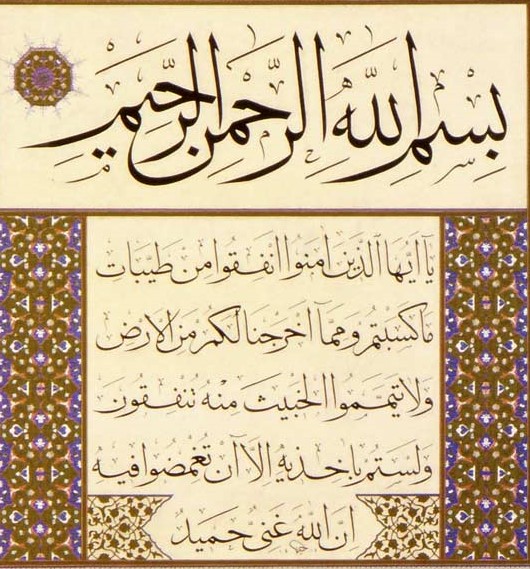 بِسْمِ اللهِ الرَّحْمٰنِ الرَّحِيمِ
يَآ اَيُّهَا الَّذِينَ اٰمَنُوا اَنْفِقُوا مِنْ طَيِّبَاتِ
مَا كَسَبْتُمْ وَمِمَّآ اَخْرَجْنَا لَكُمْ مِنَ الْاَرْضِ
وَلَا تَيَمَّمُوا الْخَبِيثَ مِنْهُ تُنْفِقُونَ
وَلَسْتُمْ بِاٰخِذِيهِ اِلَّا اَنْ تُغْمِضُوا فِيهِ
اِنَّ اللهَ غَنِىٌّ حَمِيدٌ